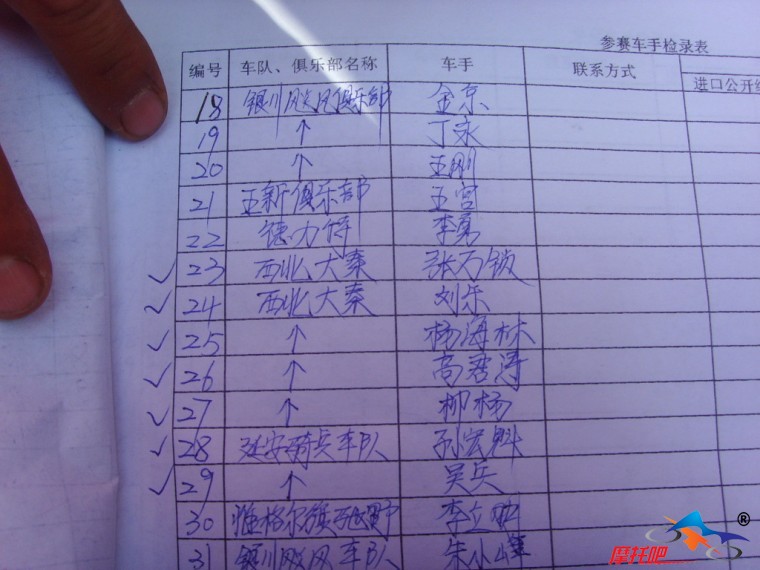 参赛车手检录表
编号 车队、俱乐部名称 车手 联系方式 进口公开
18 银川飚风俱乐部 金京
19 ↑ 丁永
20 ↑ 王刚
21 王新俱乐部 王宫
22 德力特 李勇
23 西北大秦 张万锁
24 西北大秦 刘乐
25 ↑ 杨海林
26 ↑ 高君涛
27 ↑ 柳杨
28 延安骑兵车队 孙宏魁
29 ↑ 吴兵
30 李立
31 银川飚风车队 朱小峰
摩托吧 ®